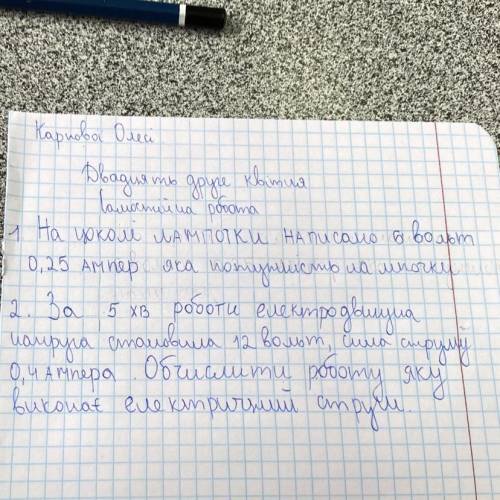 Карпова Олесі
Двадцять друге квітня
Самостійна робота
1. На цоколі лампочки написано 6 вольт
0,25 ампер яка потужність лампочки
2. За 5 хв роботи електродвигуна
напруга становила 12 вольт, сила струму
0,4 ампера. Обчислити роботу яку
виконає електричний струм.